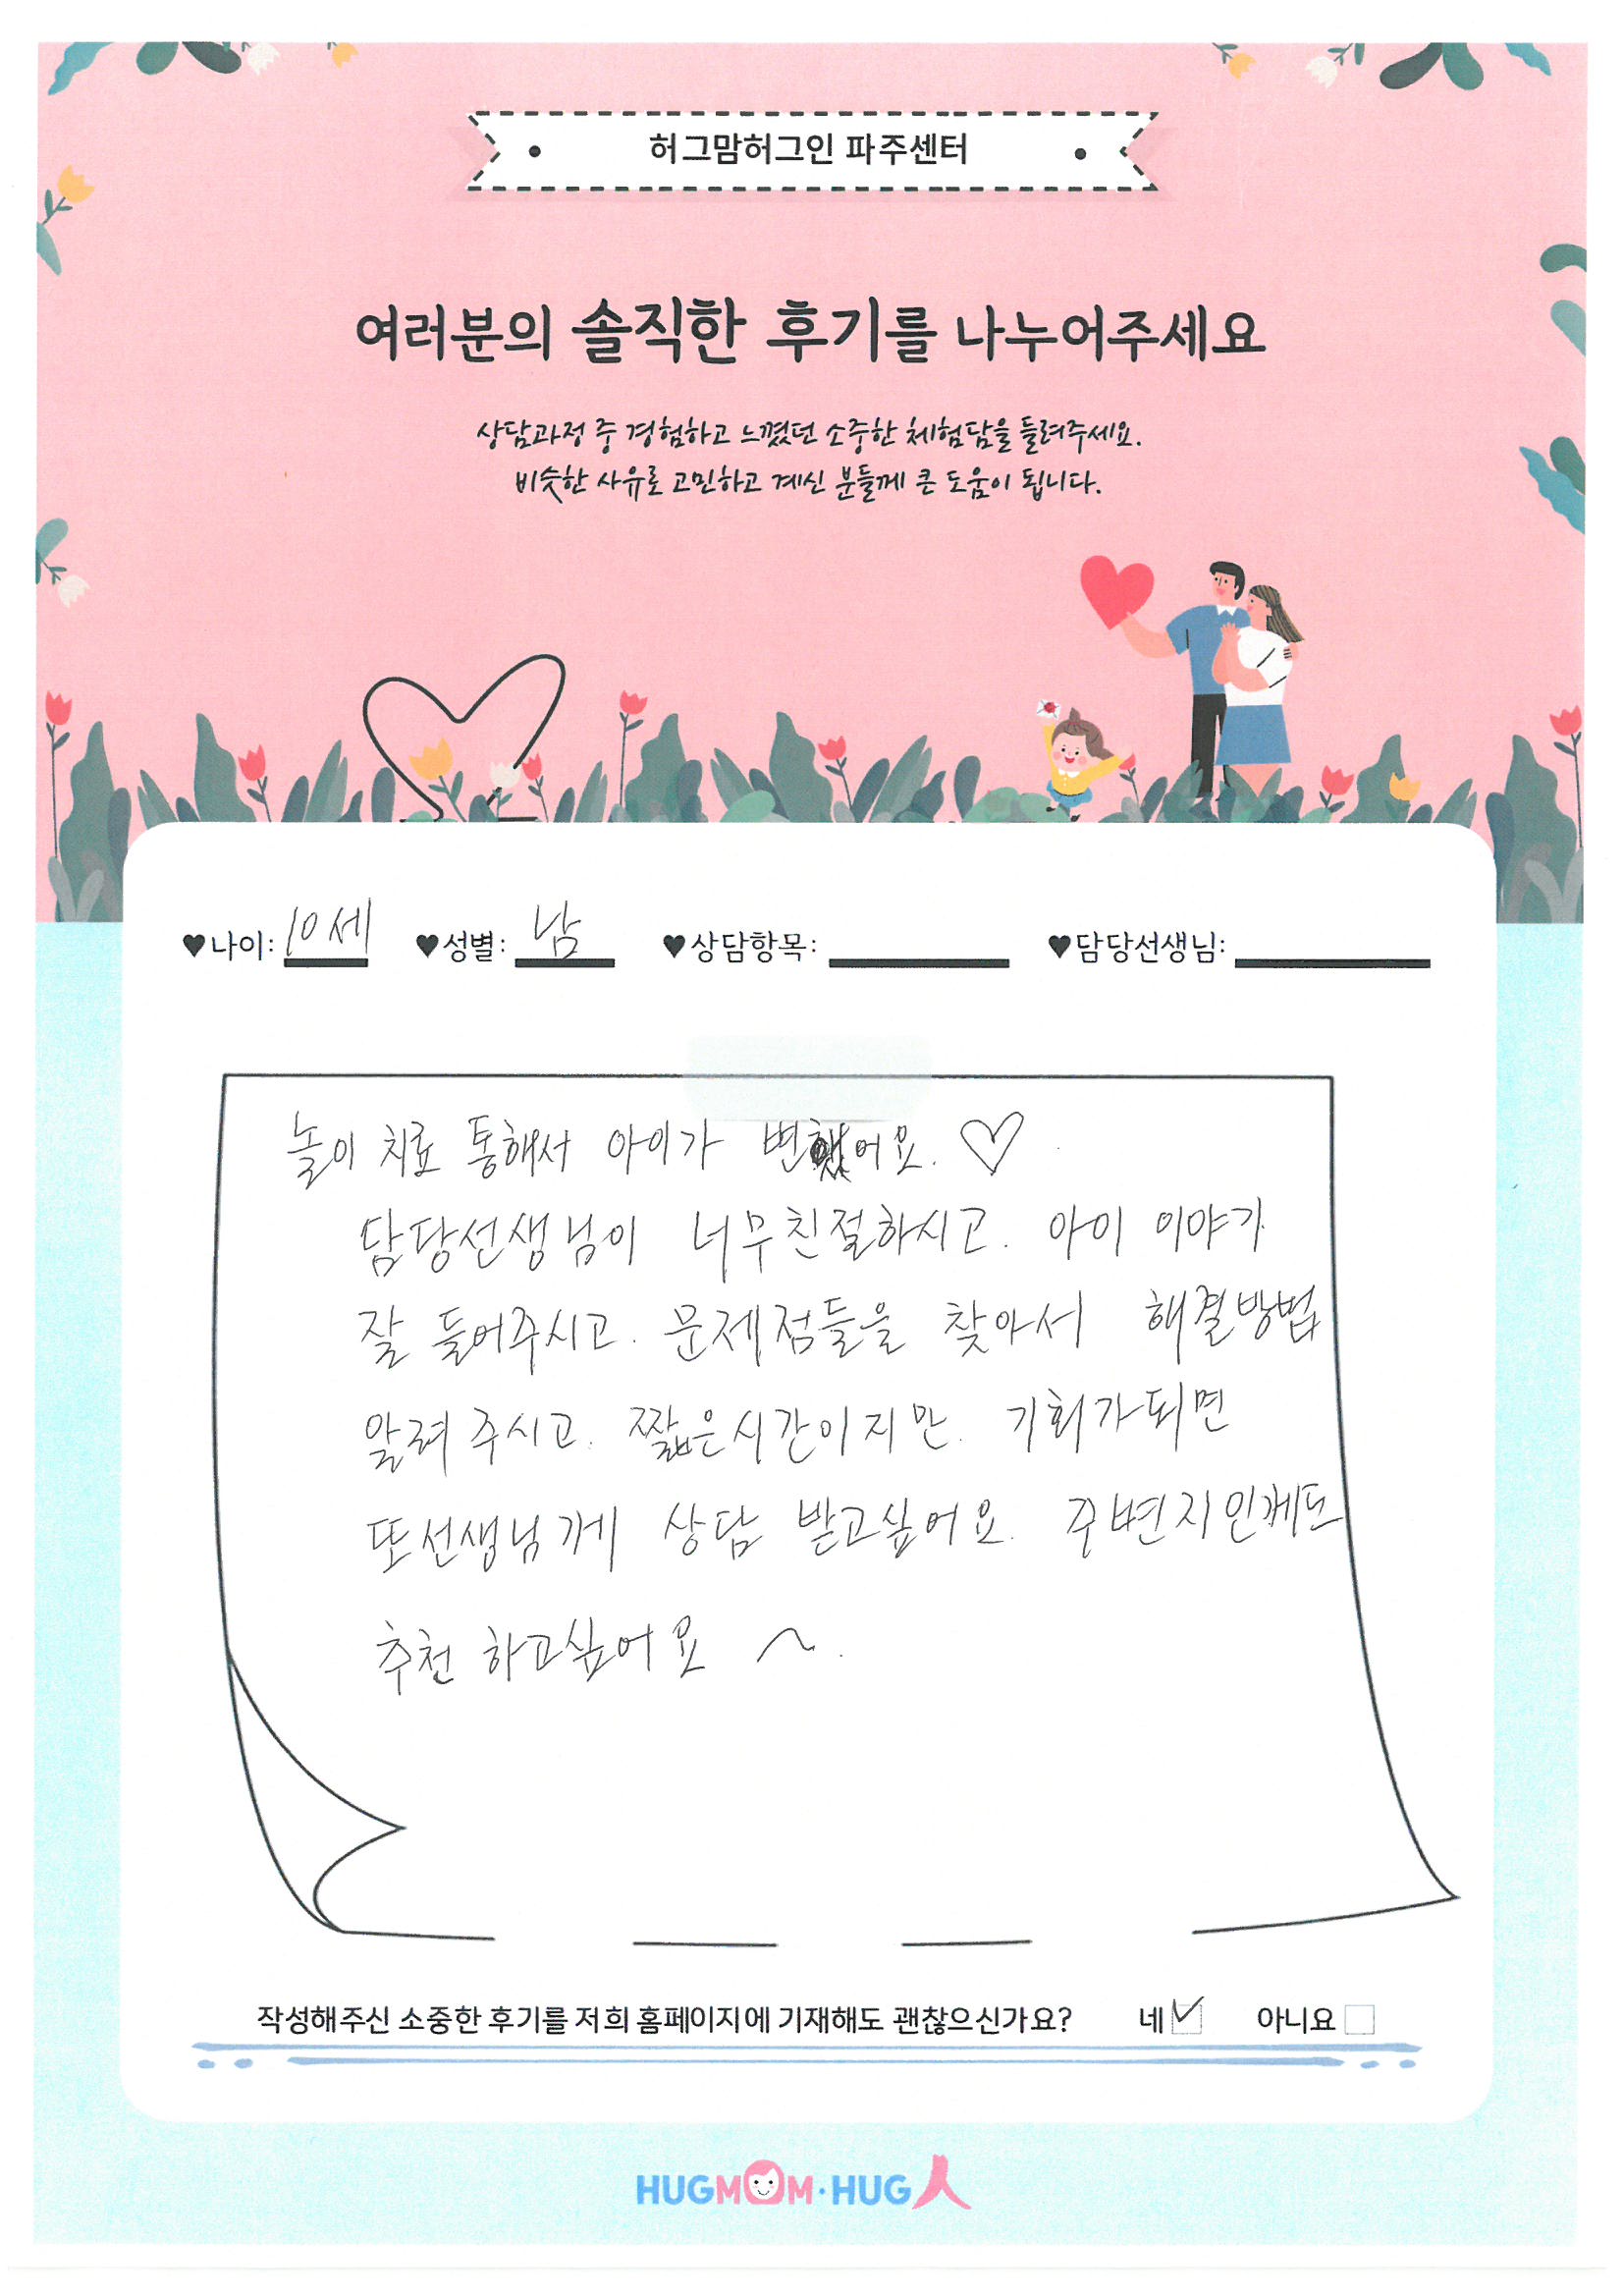 허그맘허그인 파주센터
여러분의 솔직한 후기를 나누어주세요
상담과정 중 경험하고 느꼈던 소중한 체험담을 들려주세요.
비슷한 사유로 고민하고 계신 분들께 큰 도움이 됩니다.
♥나이: 10세 ♥성별: 남 ♥상담항목: ♥담당선생님:
놀이 치료 통해서 아이가 변했어요. ♡
담당선생님이 너무친절하시고. 아이 이야기
잘 들어주시고. 문제점들을 찾아서 해결방법
알려 주시고. 짧은시간이지만. 기회가되면
또선생님께 상담 받고싶어요. 주변지인께도
추천 하고싶어요 ~.
작성해주신 소중한 후기를 저희 홈페이지에 기재해도 괜찮으신가요? 네 ✓ 아니요
HUGMOM·HUG人